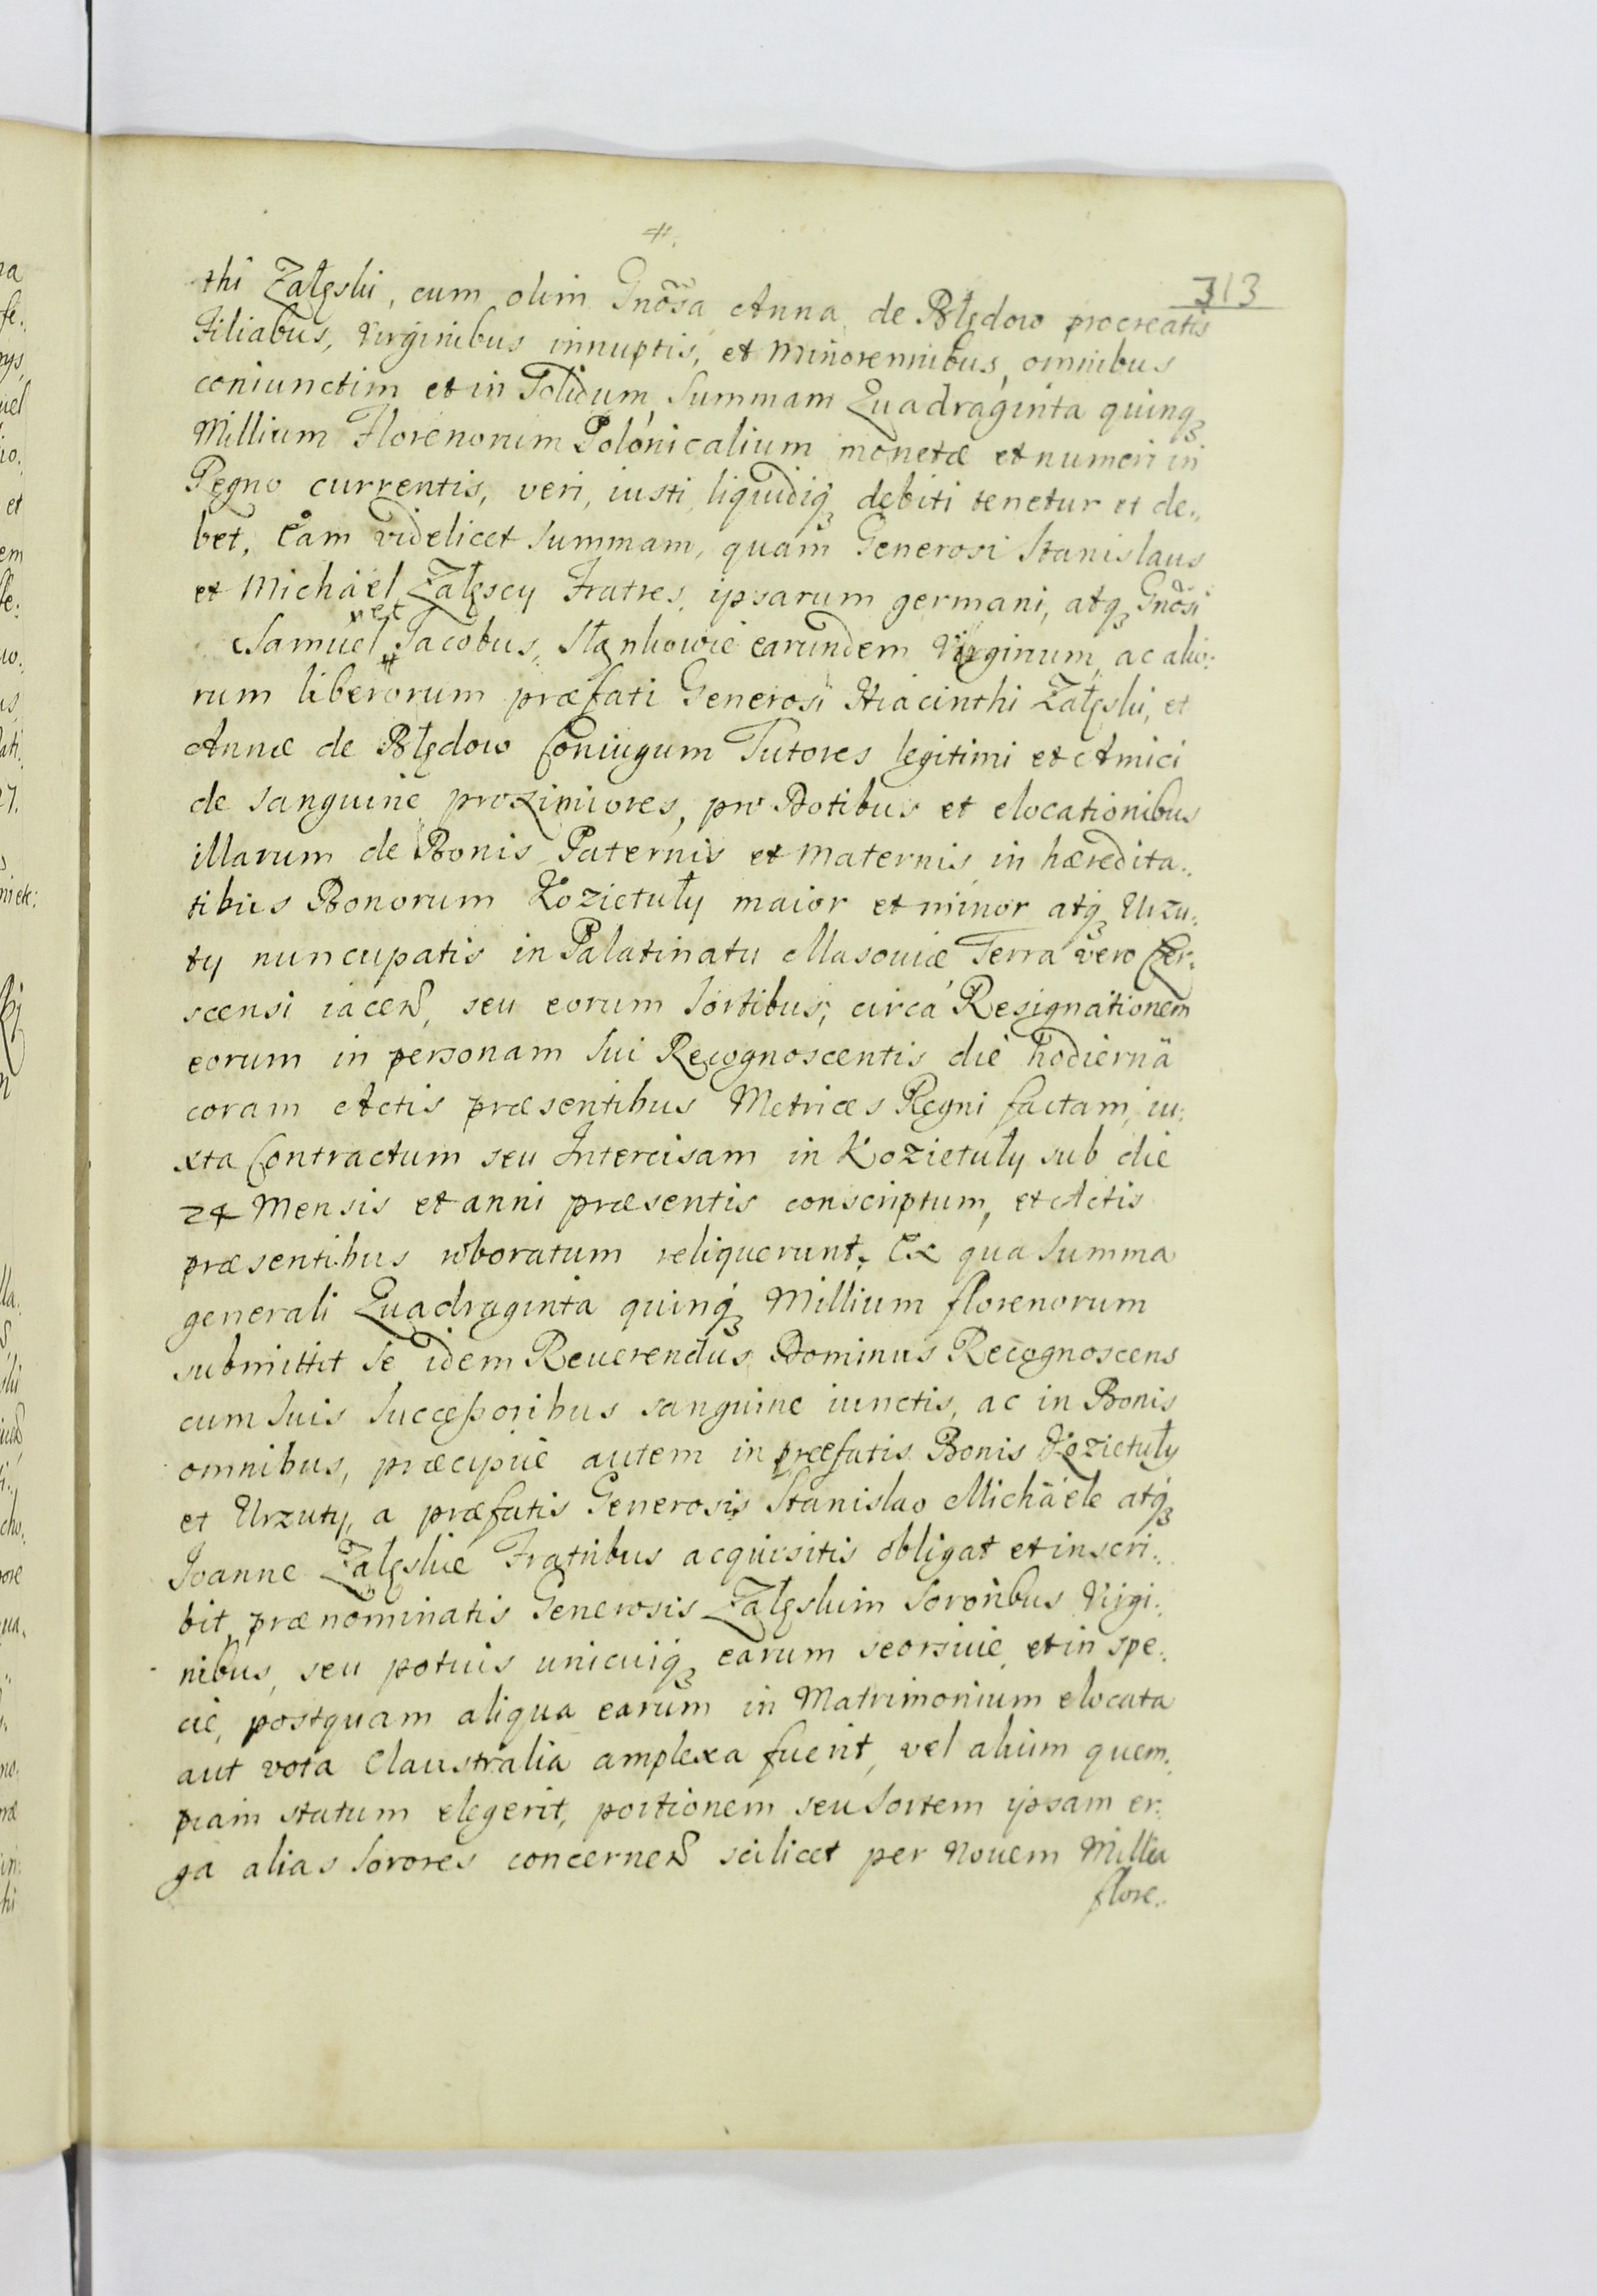 #.
313
thi Załęski, cum olim Gnõsa Anna de Błędow procreatis
Filiabus, Virginibus innuptis, et Minorennibus, omnibus
coniunctim et in Solidum, Summam Quadraginta quinqꝫ
Millium Florenorum Polonicalium monetæ et numeri in
Regno currentis, veri, iusti, liquidiqꝫ debiti tenetur et de„
bet. Eam videlicet Summam, quam Generosi Stanislaus
et Michäel Załęscy Fratres ipsarum germani, atqꝫ Gnõsi
Samuel # Jacobus, Stankowie earundem Virginum, ac alio:
rum liberorum præfati Generosi Hiacinthi Załęski, et
Annæ de Błędow Coniugum Tutores legitimi et Amici
de sanguine proximiores, pro Dotibus et elocationibus
illarum de Bonis Paternis et Maternis in hæredita„
tibus Bonorum Kozietuły maior et minor atqꝫ Urzu„
ty nuncupatis in Palatinatu Masoviæ Terra vero Cer„
scensi iaceñ, seu eorum Sortibus, circa Resignationem
eorum in personam Sui Recognoscentis die hodierna
coram Actis præsentibus Metrices Regni factam, iu„
xta Contractum seu Intercisam in Kozietuły sub die
24 Mensis et anni præsentis conscriptum, et Actis
præsentibus roboratum reliquerunt. Ex qua Summa
generali Quadraginta quinqꝫ Millium florenorum
submittit Se idem Reverendus Dominus Recognoscens
cum Suis Successoribus sanguine iunctis, ac in Bonis
omnibus, præcipue autem in præfatis Bonis Kozietuły
et Urzuty, a præfatis Generosis Stanislao Michäele atqꝫ
Ioanne Załęskie Fratribus acquisitis obligat et inscri„
bit prænominatis Generosis Załęskim Sororibus Virgi„
nibus, seu potius unicuiqꝫ earum seorsive et in spe„
cie, postquam aliqua earum in Matrimonium elocata
aut vota Claustralia amplexa fuerit, vel alium quem„
piam statum elegerit, portionem seu Sortem ipsam er„
ga alias Sorores concerneñ scilicet per Novem Millia
flore„